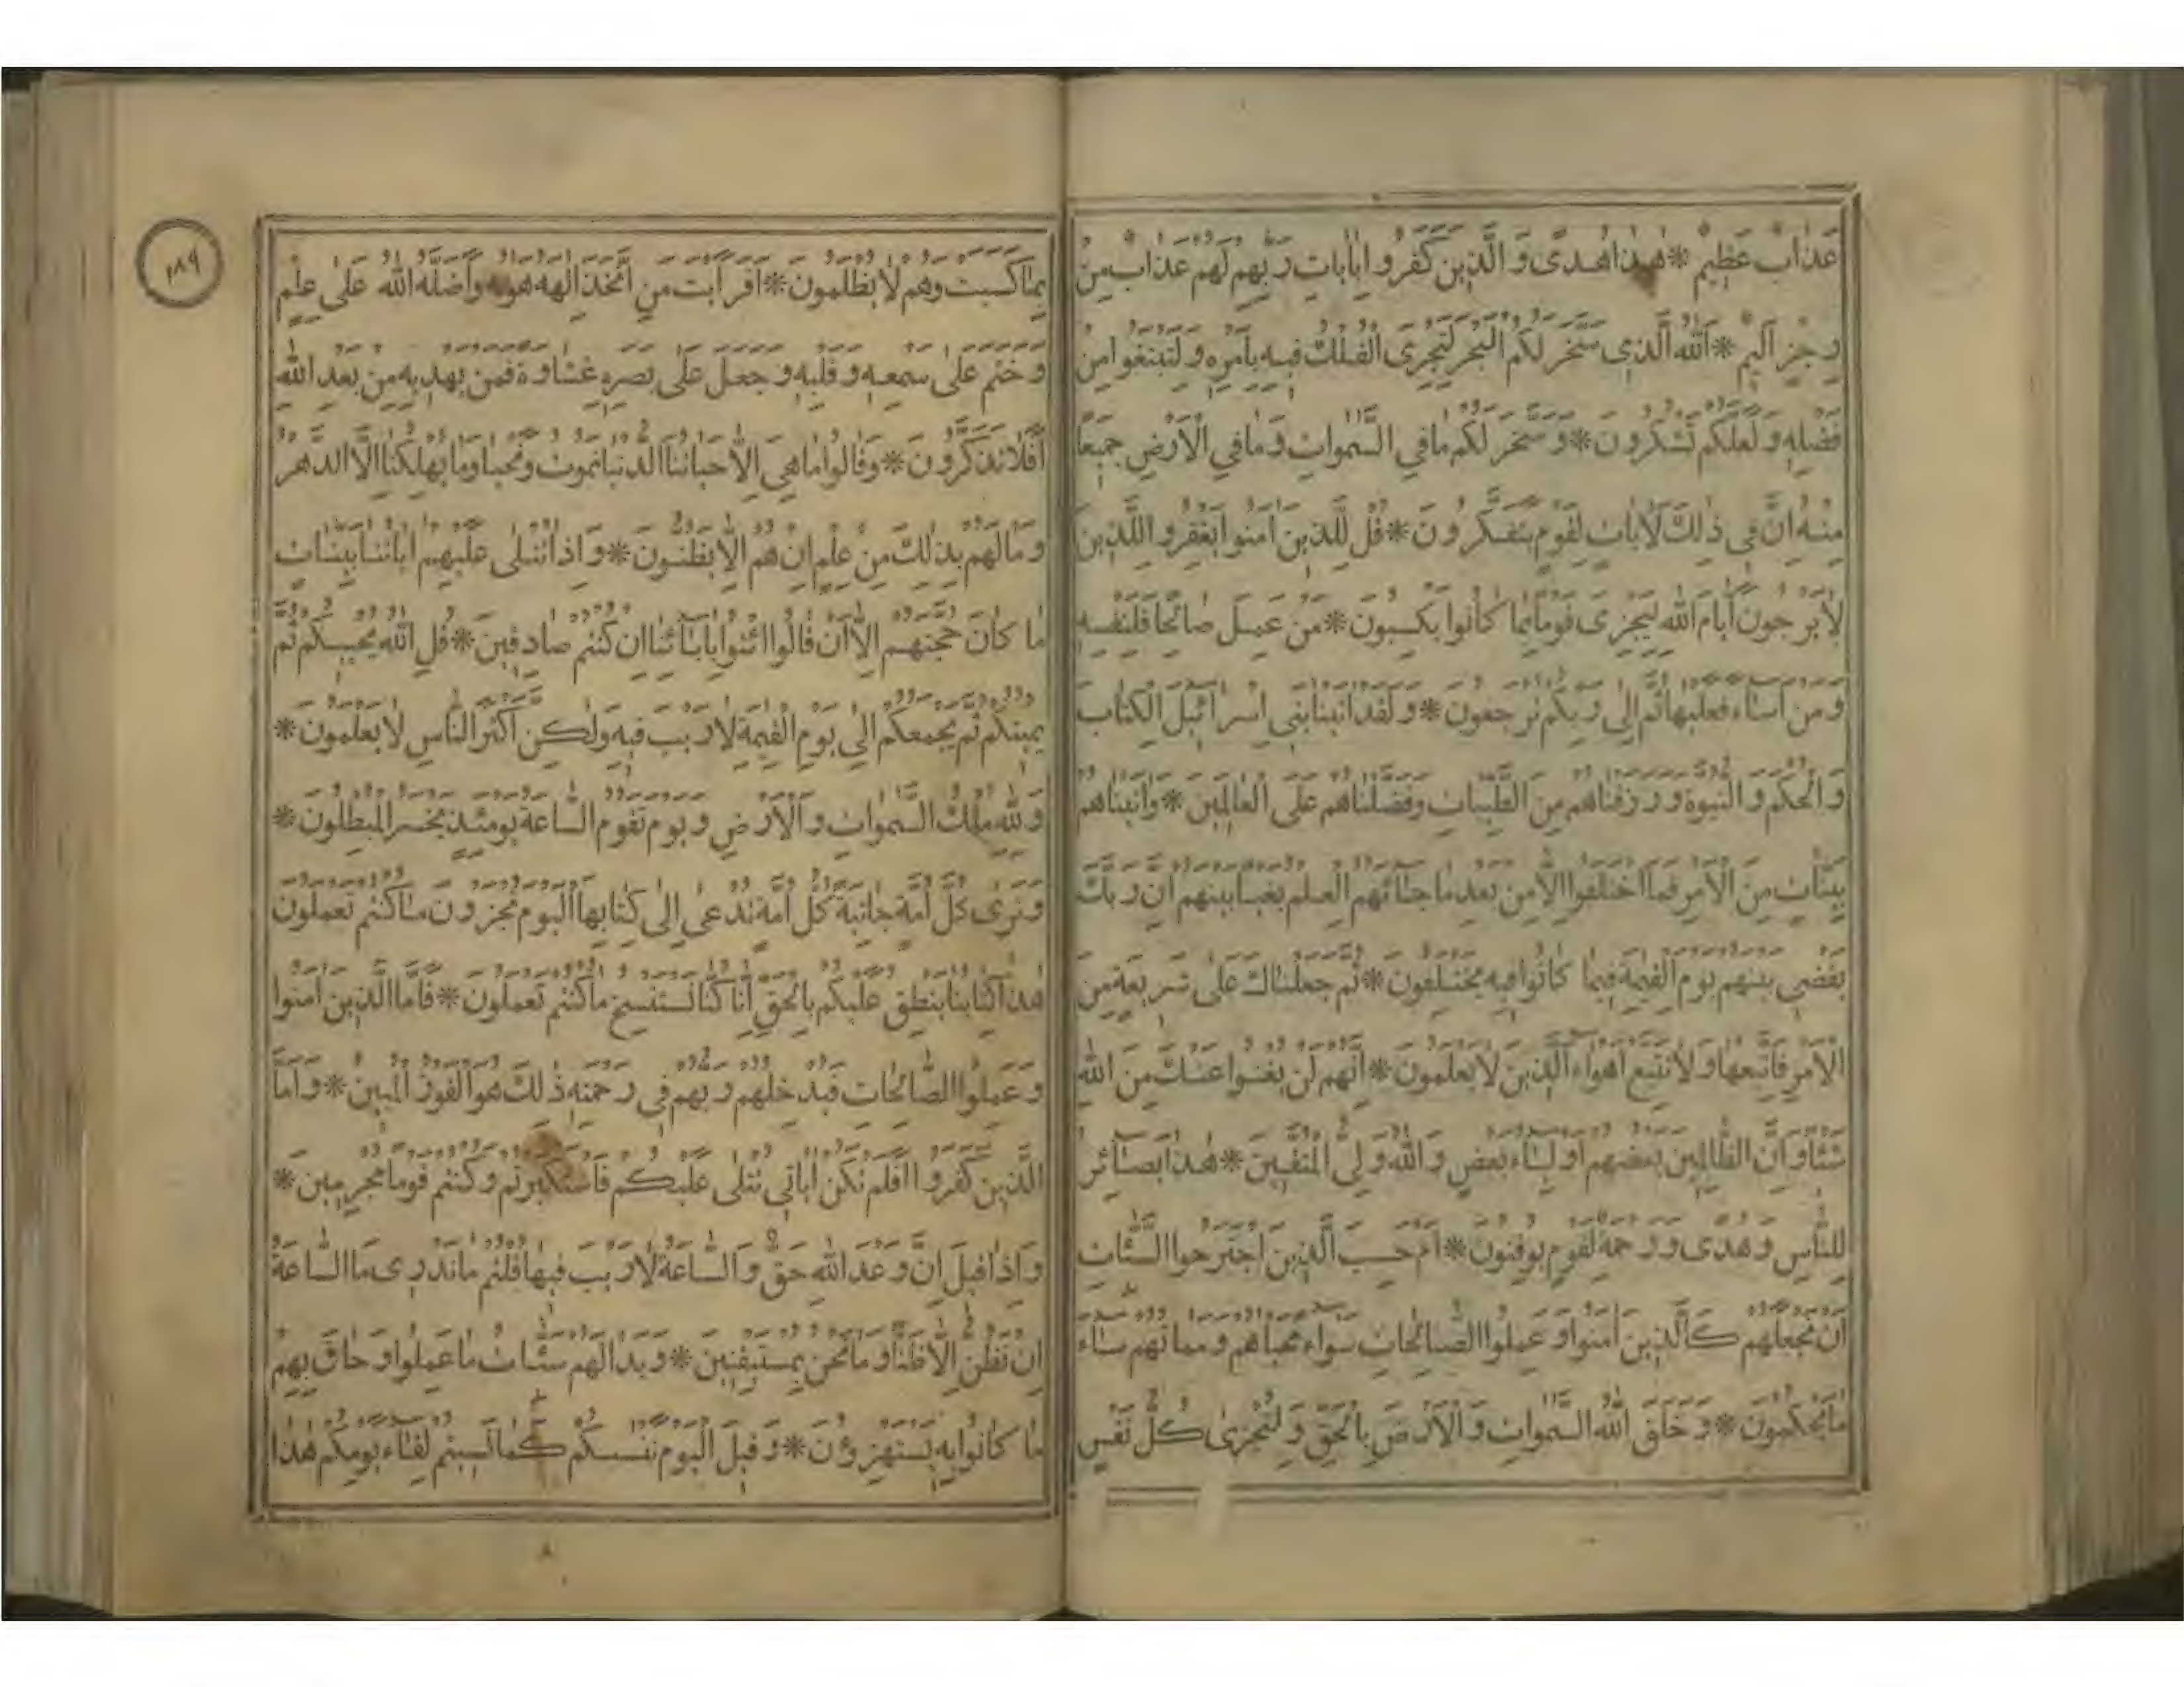 عَذَابٌ عَظِيمٌ * هٰذَا هُدًى وَالَّذِينَ كَفَرُوا بِاٰيَاتِ رَبِّهِمْ لَهُمْ عَذَابٌ مِنْ
رِجْزٍ اَلِيمٌ * اَللهُ الَّذِى سَخَّرَ لَكُمُ الْبَحْرَ لِتَجْرِىَ الْفُلْكُ فِيهِ بِاَمْرِهِ وَلِتَبْتَغُوا مِنْ
فَضْلِهِ وَلَعَلَّكُمْ تَشْكُرُونَ * وَسَخَّرَ لَكُمْ مَا فِي السَّمٰوَاتِ وَمَا فِي الْاَرْضِ جَمِيعًا
مِنْهُ اِنَّ فِى ذٰلِكَ لَاٰيَاتٍ لِقَوْمٍ يَتَفَكَّرُونَ * قُلْ لِلَّذِينَ اٰمَنُوا يَغْفِرُوا لِلَّذِينَ
لَا يَرْجُونَ اَيَّامَ اللهِ لِيَجْزِىَ قَوْمًا بِمَا كَانُوا يَكْسِبُونَ * مَنْ عَمِلَ صَالِحًا فَلِنَفْسِهِ
وَمَنْ اَسَاءَ فَعَلَيْهَا ثُمَّ اِلٰى رَبِّكُمْ تُرْجَعُونَ * وَلَقَدْ اٰتَيْنَا بَنِى اِسْرَائِيلَ الْكِتَابَ
وَالْحُكْمَ وَالنُّبُوَّةَ وَرَزَقْنَاهُمْ مِنَ الطَّيِّبَاتِ وَفَضَّلْنَاهُمْ عَلَى الْعَالَمِينَ * وَاٰتَيْنَاهُمْ
بَيِّنَاتٍ مِنَ الْاَمْرِ فَمَا اخْتَلَفُوا اِلَّا مِنْ بَعْدِ مَا جَائَهُمُ الْعِلْمُ بَغْيًا بَيْنَهُمْ اِنَّ رَبَّكَ
يَقْضِى بَيْنَهُمْ يَوْمَ الْقِيٰمَةِ فِيمَا كَانُوا فِيهِ يَخْتَلِفُونَ * ثُمَّ جَعَلْنَاكَ عَلٰى شَرِيعَةٍ مِنَ
الْاَمْرِ فَاتَّبِعْهَا وَلَا تَتَّبِعْ اَهْوَاءَ الَّذِينَ لَا يَعْلَمُونَ * اِنَّهُمْ لَنْ يُغْنُوا عَنْكَ مِنَ اللهِ
شَيْئًا وَاِنَّ الظَّالِمِينَ بَعْضُهُمْ اَوْلِيَاءُ بَعْضٍ وَاللهُ وَلِىُّ الْمُتَّقِينَ * هٰذَا بَصَائِرُ
لِلنَّاسِ وَهُدًى وَرَحْمَةٌ لِقَوْمٍ يُوقِنُونَ * اَمْ حَسِبَ الَّذِينَ اجْتَرَحُوا السَّيِّئَاتِ
اَنْ نَجْعَلَهُمْ كَالَّذِينَ اٰمَنُوا وَعَمِلُوا الصَّالِحَاتِ سَوَاءً مَحْيَاهُمْ وَمَمَاتُهُمْ سَاءَ
مَا يَحْكُمُونَ * وَخَلَقَ اللهُ السَّمٰوَاتِ وَالْاَرْضَ بِالْحَقِّ وَلِتُجْزٰى كُلُّ نَفْسٍ
١٨٩
بِمَا كَسَبَتْ وَهُمْ لَا يُظْلَمُونَ * اَفَرَاَيْتَ مَنِ اتَّخَذَ اِلٰهَهُ هَوٰيهُ وَاَضَلَّهُ اللهُ عَلٰى عِلْمٍ
وَخَتَمَ عَلٰى سَمْعِهِ وَقَلْبِهِ وَجَعَلَ عَلٰى بَصَرِهِ غِشَاوَةً فَمَنْ يَهْدِيهِ مِنْ بَعْدِ اللهِ
اَفَلَا تَذَكَّرُونَ * وَقَالُوا مَا هِىَ اِلَّا حَيَاتُنَا الدُّنْيَا نَمُوتُ وَنَحْيَا وَمَا يُهْلِكُنَا اِلَّا الدَّهْرُ
وَمَا لَهُمْ بِذٰلِكَ مِنْ عِلْمٍ اِنْ هُمْ اِلَّا يَظُنُّونَ * وَاِذَا تُتْلٰى عَلَيْهِمْ اٰيَاتُنَا بَيِّنَاتٍ
مَا كَانَ حُجَّتَهُمْ اِلَّا اَنْ قَالُوا ائْتُوا بِاٰبَائِنَا اِنْ كُنْتُمْ صَادِقِينَ * قُلِ اللهُ يُحْيِيكُمْ ثُمَّ
يُمِيتُكُمْ ثُمَّ يَجْمَعُكُمْ اِلٰى يَوْمِ الْقِيٰمَةِ لَا رَيْبَ فِيهِ وَلٰكِنَّ اَكْثَرَ النَّاسِ لَا يَعْلَمُونَ *
وَلِلّٰهِ مُلْكُ السَّمٰوَاتِ وَالْاَرْضِ وَيَوْمَ تَقُومُ السَّاعَةُ يَوْمَئِذٍ يَخْسَرُ الْمُبْطِلُونَ *
وَتَرٰى كُلَّ اُمَّةٍ جَاثِيَةً كُلُّ اُمَّةٍ تُدْعٰى اِلٰى كِتَابِهَا اَلْيَوْمَ تُجْزَوْنَ مَا كُنْتُمْ تَعْمَلُونَ
هٰذَا كِتَابُنَا يَنْطِقُ عَلَيْكُمْ بِالْحَقِّ اِنَّا كُنَّا نَسْتَنْسِخُ مَا كُنْتُمْ تَعْمَلُونَ * فَاَمَّا الَّذِينَ اٰمَنُوا
وَعَمِلُوا الصَّالِحَاتِ فَيُدْخِلُهُمْ رَبُّهُمْ فِى رَحْمَتِهِ ذٰلِكَ هُوَ الْفَوْزُ الْمُبِينُ * وَاَمَّا
الَّذِينَ كَفَرُوا اَفَلَمْ تَكُنْ اٰيَاتِى تُتْلٰى عَلَيْكُمْ فَاسْتَكْبَرْتُمْ وَكُنْتُمْ قَوْمًا مُجْرِمِينَ *
وَاِذَا قِيلَ اِنَّ وَعْدَ اللهِ حَقٌّ وَالسَّاعَةُ لَا رَيْبَ فِيهَا قُلْتُمْ مَا نَدْرِى مَا السَّاعَةُ
اِنْ نَظُنُّ اِلَّا ظَنًّا وَمَا نَحْنُ بِمُسْتَيْقِنِينَ * وَبَدَا لَهُمْ سَيِّئَاتُ مَا عَمِلُوا وَحَاقَ بِهِمْ
مَا كَانُوا بِهِ يَسْتَهْزِؤُنَ * وَقِيلَ الْيَوْمَ نَنْسٰيكُمْ كَمَا نَسِيتُمْ لِقَاءَ يَوْمِكُمْ هٰذَا